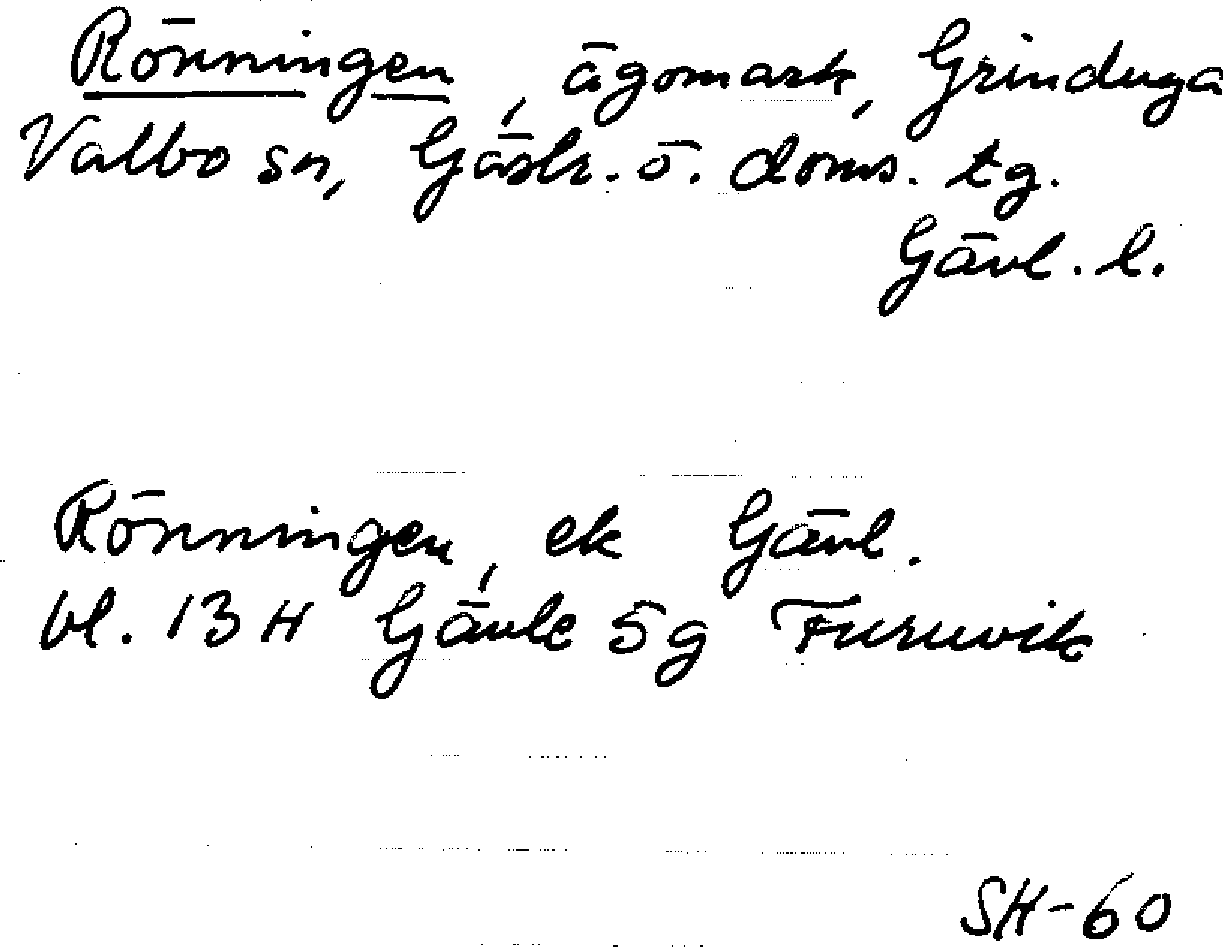 Rönningen, ägomark, Grinduga
Valbo sn, Gästr. ö. doms. tg.
Gävl. l.
Rönningen, ek Gävl.
bl. 13 H Gävle 5g Furuvik
SH-60